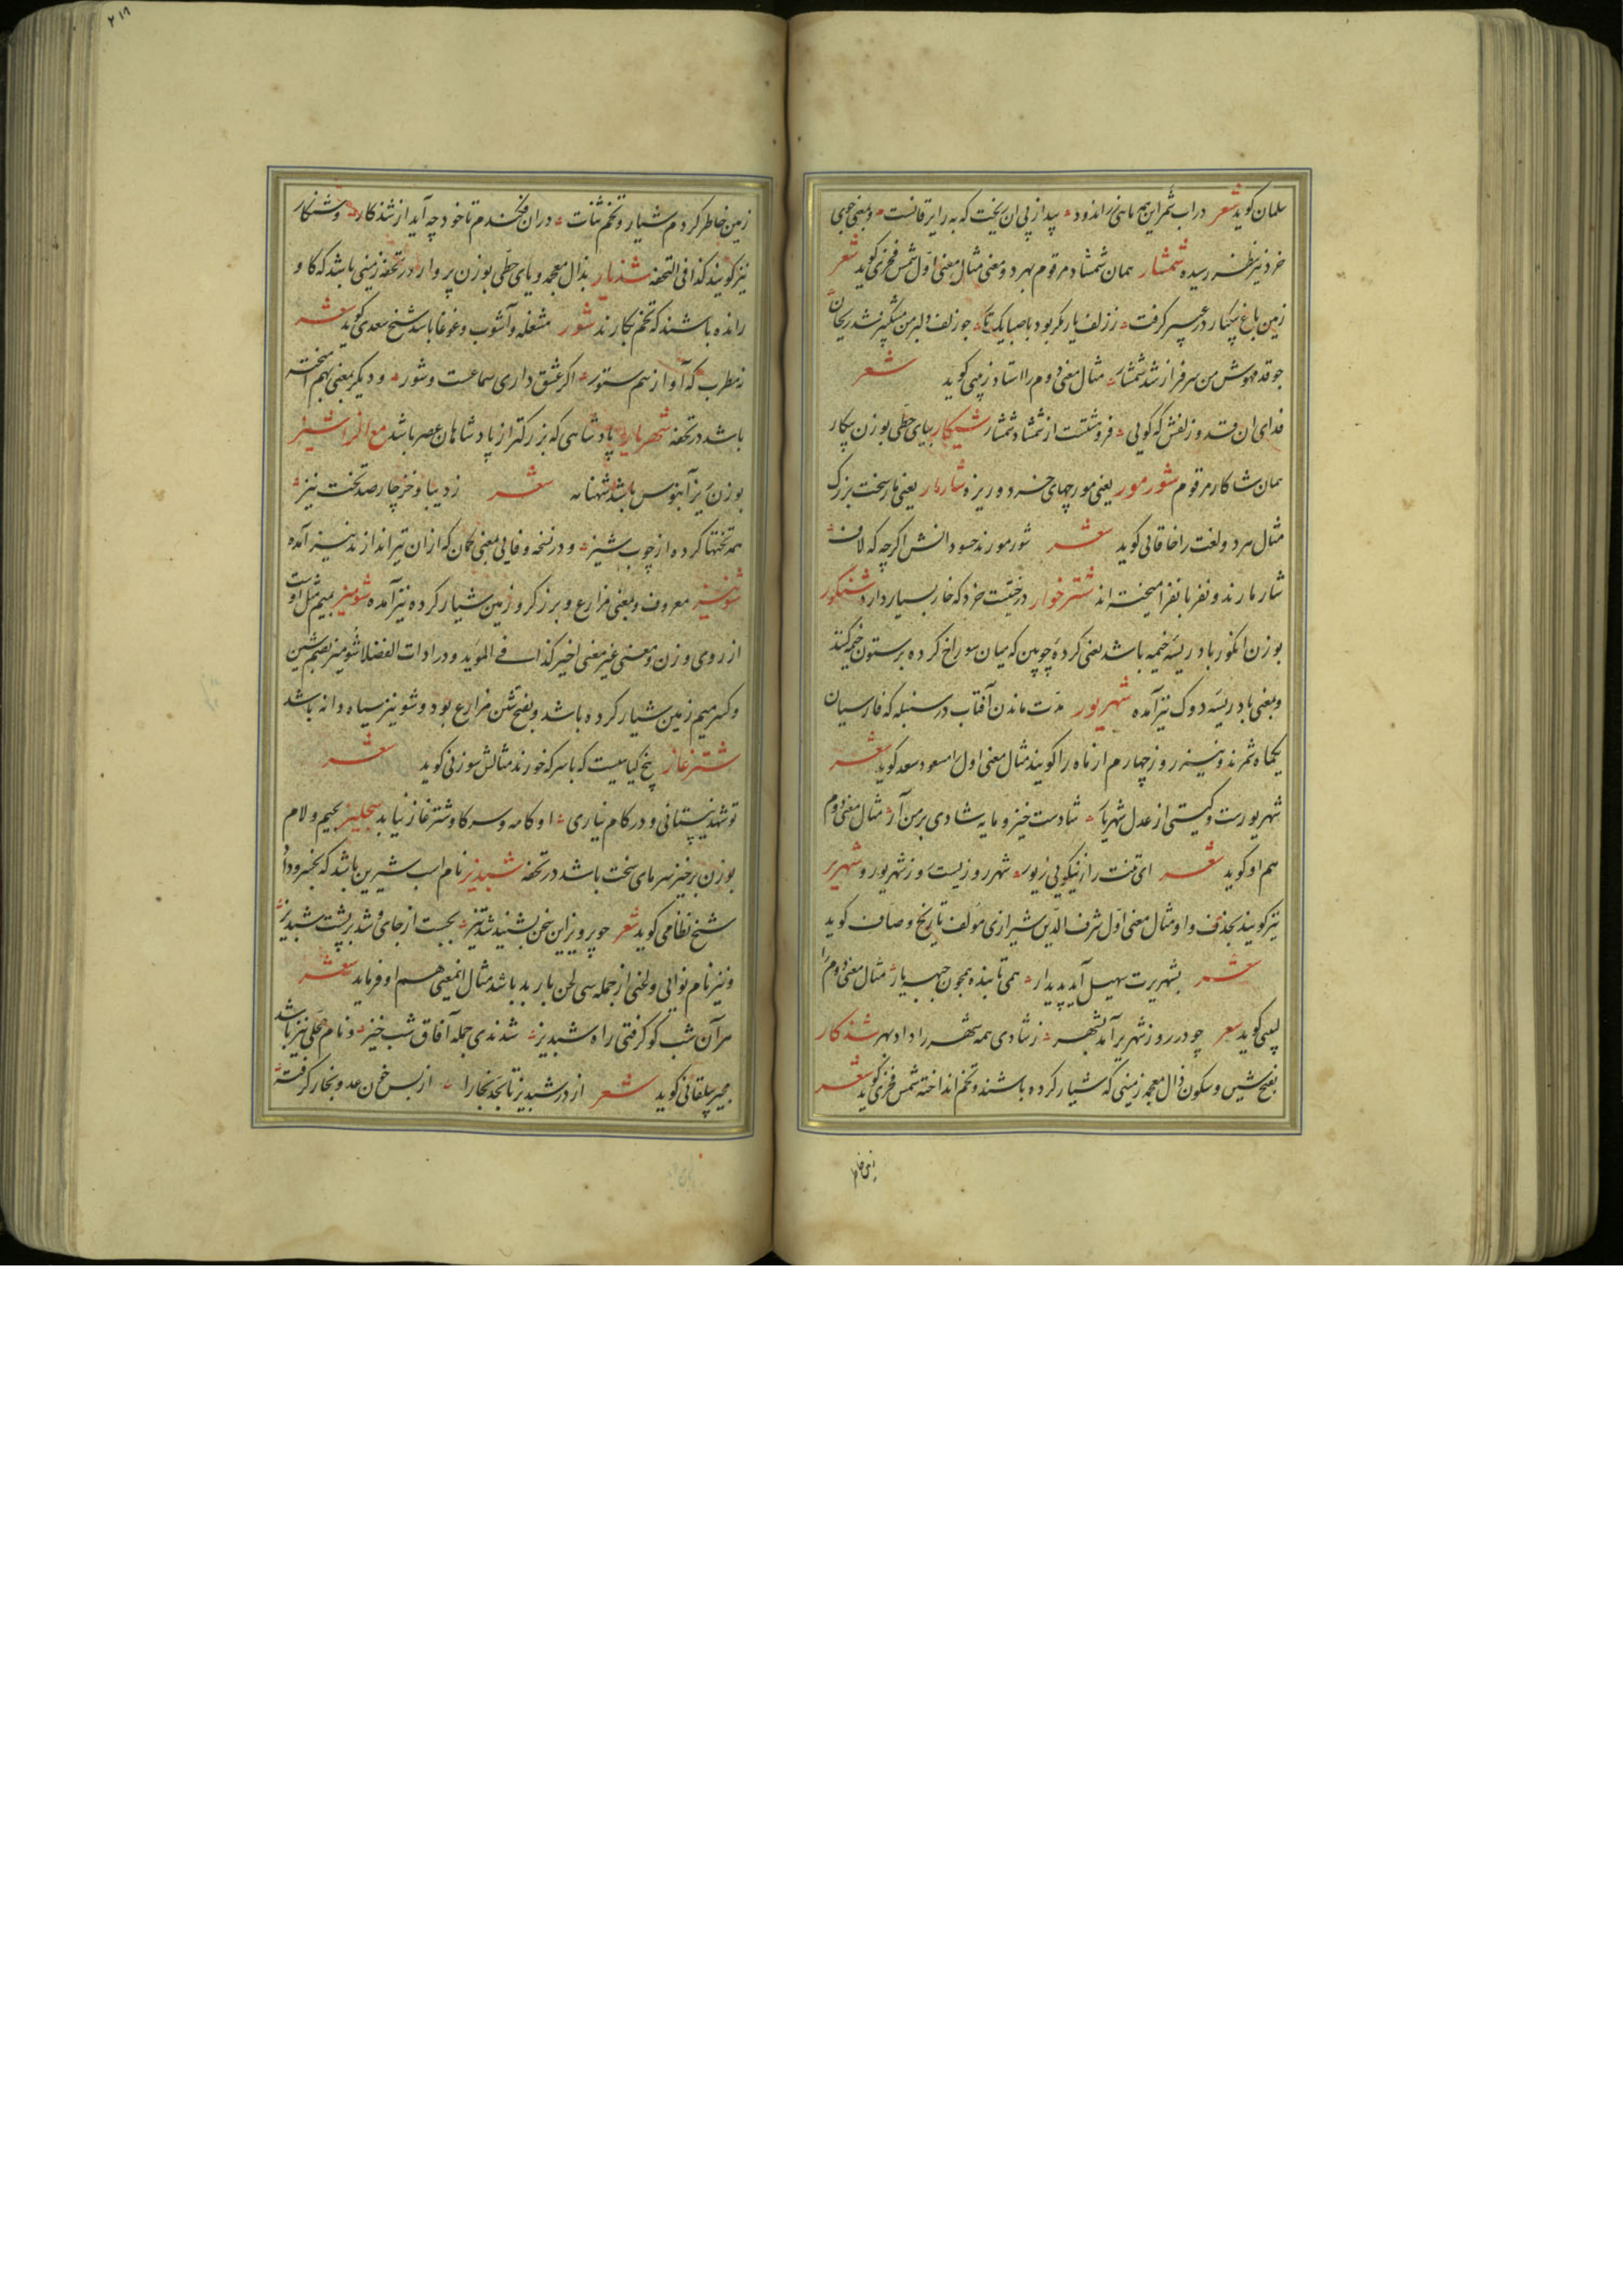 سلمان کوید شعر در اب شمر این هم ماهی زر اندود پیدا ز پی ان یخت که به رایر قانست و بمعنی حوبی
خرد نیز بنظر رسیده شمشار همان شمشاد مرقوم بهر دو معنی مثال معنی اول شمس فخری کوید شعر
زمین باغ بیکبار در عبیر کرفت ز زلف یار مکر بود با صبا یکتا جو زلف دلبر من مشکبیز شد ریحان
جو قد مهوش من سرفراز شد شمشار مثال معنی دوم را استاد زمینی کوید شعر
فدای ان قد و زلفش که کویی فرو هشتست از شمشاد شمشار شیکار بیای حطی بوزن بیکار
همان شاکار مرقوم شورمور یعنی مورچهای خرد و ریزه شارمار یعنی مار سخت بزرک
مثال هر دو لغت را خاقانی کوید شعر شور مورند حسود انش اکرچه که لاف
شار مارند و نفر با نفر امیخته اند شترخوار درختیست خرد که خار بسیار دارد شنکور
بوزن انکور بادریسه خیمه باشد یعنی کرده چوبین که میان سوراخ کرده بر ستون خیمه کنند
و بمعنی بادریسه دوک نیز آمده شهریور مدت ماندن آفتاب در سنبله که فارسیان
یکماه شمرند و نیز روز چهارم از ماه را کویند مثال معنی اول را مسعود سعد کوید شعر
شهریورست و کیتی از عدل شهریار شادست خیز و مایه شادی بر من آر مثال معنی دوم
هم او کوید شعر ای تنت را ز نیکویی زیور شهر روزیست روز شهریور و شهریر
نیز کویند بحذف واو مثال معنی اول شرف الدین شیرازی مولف تاریخ وصاف کوید
شعر بشهریرت سهیل آید پدیدار همی تابنده همچون جبهه یار مثال معنی دوم را
لبیبی کوید شعر چو در روز شهریر آمد بشهر ز شادی همه شهر را داد بهر شدکار
بفتح شین و سکون دال معجمه زمینی که شیار کرده باشند و تخم انداخته شمس فخری کوید شعر
زمین خاطر
زمین خاطر کردم شیار و تخم ثنات دران فکندم تا خود چه آید از شدکار و شنکار
نیز کویند کذا فی التحفه شذیار بذال معجمه و یای حطی بوزن پروار در تحفه زمینی باشد که کاو
رانده باشند که تخم بکارند شور مشغله و آشوب و غوغا باشد شیخ سعدی کوید شعر
نه مطرب که آواز سم ستور اکر عشق داری سماعست و شور و دیکر بمعنی بهم امیخته
باشد در تحفه شهریار پادشاهی که بزرکتر از پادشاهان عصر باشد مع الزا شیز
بوزن نیز آبنوس باشد شهنامه شعر ز دیبا و خز چار صد تخت نیز
همه تختها کرده از چوب شیز و در نسخه وفایی بمعنی کمان که از ان تیر اندازند نیز آمده
شونیز معروف و بمعنی مزارع و برزکر و زمین شیار کرده نیز آمده شومیز بمیم مثل اوست
از روی وزن و معنی غیر معنی اخیر کذا فی الموید و در ادات الفضلا شومیز بضم شین
و کسر میم زمین شیار کرده باشد و بفتح شین مزارع بود و شونیز سیاه دانه باشد
شترغاز بیخ کیاهیست که با سرکه خورند مثالش سوزنی کوید شعر
تو شهد نیستانی و در کام نیاری او کامه و سرکا و شترغاز نیابد شجلیز بجیم و لام
بوزن برخیز سرمای سخت باشد در تحفه شبدیز نام اسب شیرین باشد که بخسرو داد
شیخ نظامی کوید شعر جو پرویز این سخن بشنید شد تیز بجست از جای و شد بر پشت شبدیز
و نیز نام نوایی و لحنی از جمله سی لحن باربد باشد مثال اینمعنی هم او فرماید شعر
هر آن شب کو کرفتی راه شبدیز شدندی جمله آفاق شب خیز و نام محلی نیز باشد
مجیر بیلقانی کوید شعر از در شبدیز تا بحد بخارا از بس خون عدو بخار کرفت
۲۱۸